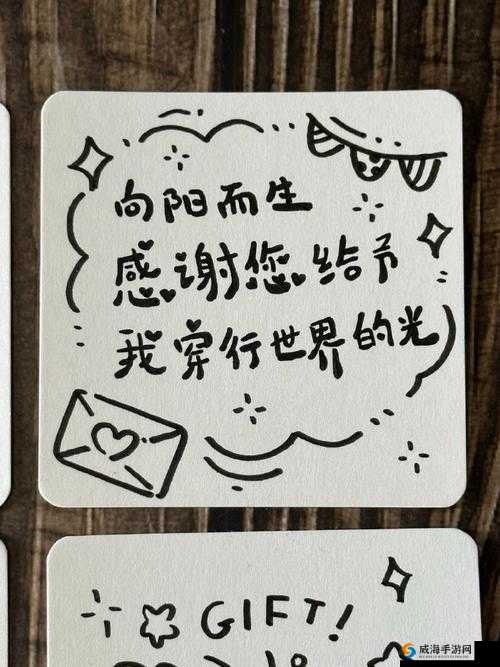 向阳而生
感谢您给予
我穿行世界的光
GIFT!
威海手游网